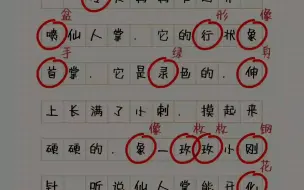 盆 形 像
喷仙人掌，它的行状象
手 绿 身
首掌，它是录色的，伸
上长满了小刺，摸起来
像 枚 枚 钢
硬硬的，象一玫玫小刚
花
针，听说仙人掌能开化